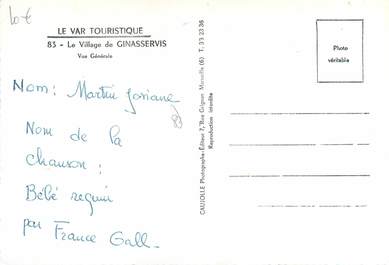 10 €
LE VAR TOURISTIQUE
83 - Le Village de GINASSERVIS
Vue Générale
Nom: Martin Josiane
83
Nom de la
chanson:
Bébé requin
par France Gall.
CAUJOLLE Photographe-Éditeur 7, Rue Grignan Marseille (6) T. 33 23 36
Reproduction interdite
Photo
véritable